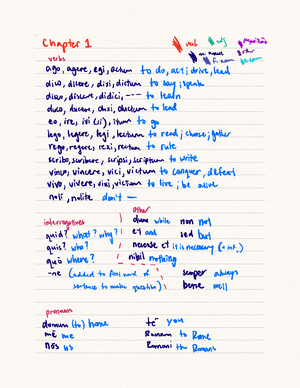 Chapter 1
verb adj preposition
m. noun other
f. noun
verbs
ago, agere, egi, actum to do, act; drive, lead
dico, dicere, dixi, dictum to say; speak
disco, discere, didici, --- to learn
duco, ducere, duxi, ductum to lead
eo, ire, ivi (ii), itum to go
lego, legere, legi, lectum to read; choose; gather
rego, regere, rexi, rectum to rule
scribo, scribere, scripsi, scriptum to write
vinco, vincere, vici, victum to conquer, defeat
vivo, vivere, vixi, victum to live; be alive
noli, nolite don't —
interrogatives
quid? what? why?
quis? who?
quō where?
-ne (added to first word of
sentence to make question)
other
dum while non not
et and sed but
necesse est it is necessary (+ inf.)
nihil nothing
semper always
bene well
pronouns
domum (to) home tē you
mē me Romam to Rome
nōs us Romani the Romans